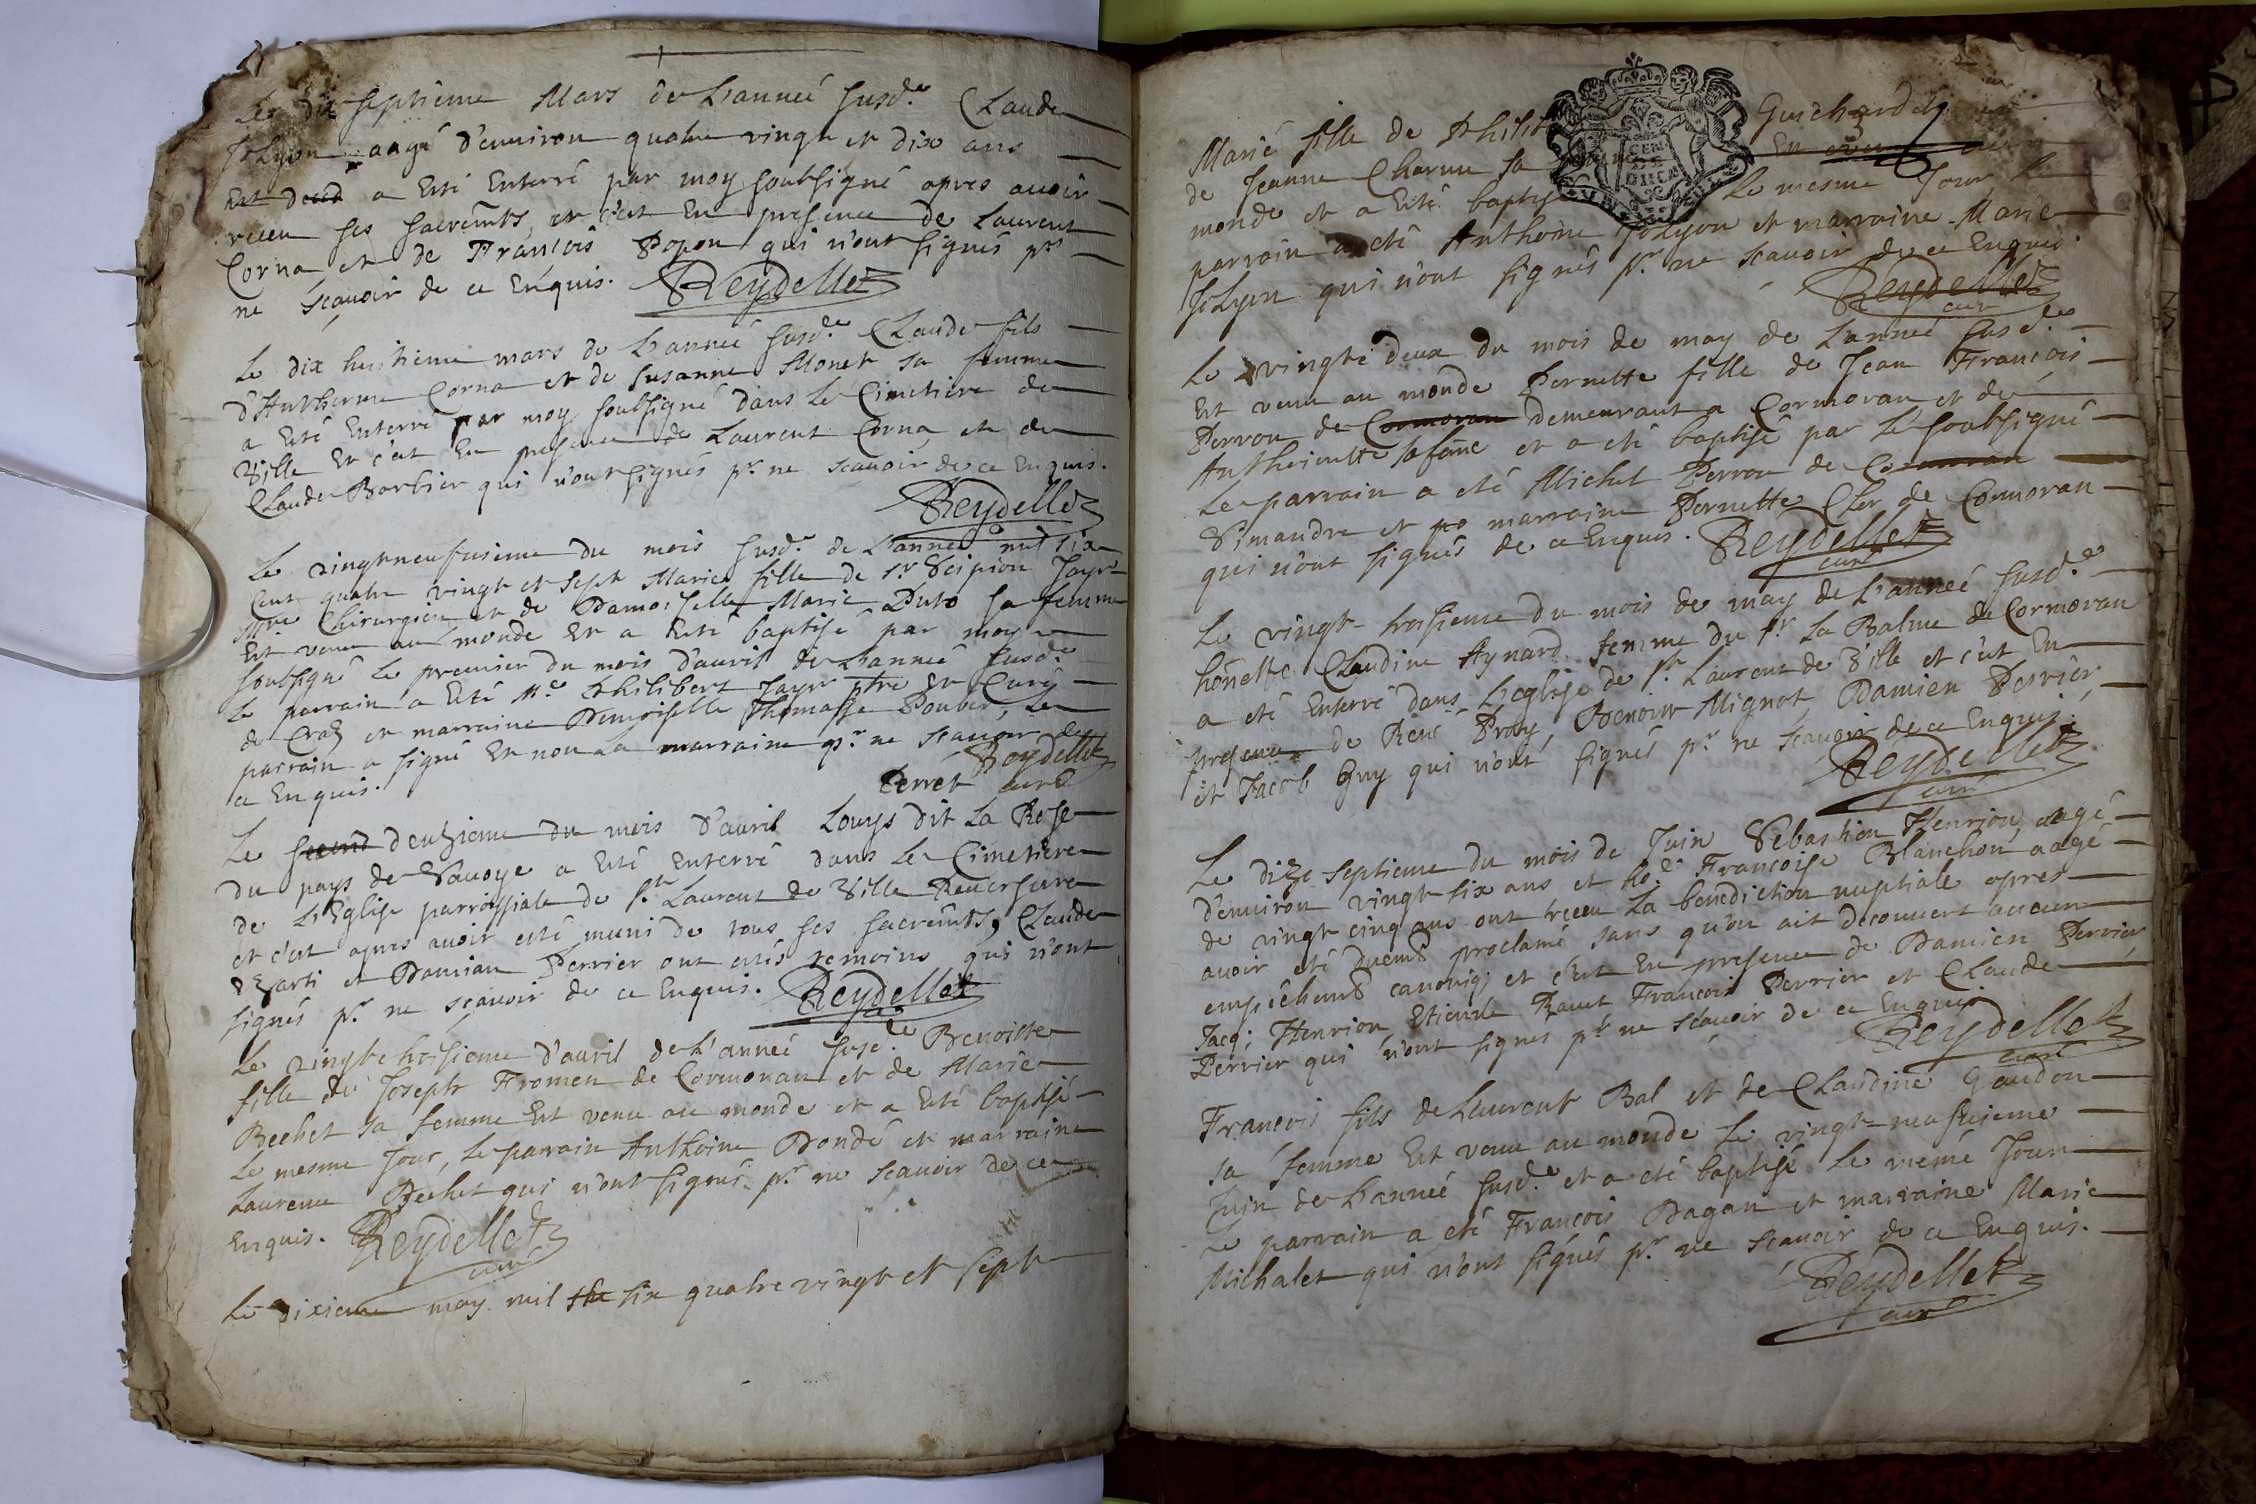 Le dix septieme Mars de L'anneé susd.e Claude
Jolyon aagé d'enuiron quatre vingt et dix ans
Est deced a Esté Enterré par moy soubsigné apres auoir
receu ses sacremts, et c'est En presence de Laurent
Corna et de Francois Popon qui n'ont signés pr
ne scauoir de ce Enquis. Reydellet
Le dix huitieme mars de L'anneé susd.e Claude fils
d'Antherme Corna et de Susanne Monet sa femme
a Esté Enterré par moy soubsigné dans Le Cimetiere de
Ville Et c'est En presence de Laurent Corna et de
Claude Barbier qui n'ont signés pr. ne scauoir de ce Enquis.
Reydellet
Le vingt neufuieme du mois susd.e de L'anneé mil six
Cent quatre vingt et sept Marie fille de sr Scipion Jayr
Mre Chirurgien et de Damoiselle Marie Duto sa femme
Est venu au monde Et a Esté baptisé par moy
soubsigné Le premier du mois d'auril de L'anneé susd.e
Le parrain a Esté Mre Philibert Jayr ptre Et Curé
de Craz et marraine Demoiselle Thomasse Poubet, Le
parrain a signé Et non La marraine pr. ne scauoir de
ce Enquis. Perret Reydellet
curé
Le second deuzieme du mois d'auril Louys dit La Rose
du pays de Sauoye a Esté Enterré dans Le Cimetiere
de L'Eglise parroissiale de St Laurent de Ville Reuersure
et c'est apres auoir esté muni de tous ses sacremts, Claude
et Damian Perrier ont estés temoins qui n'ont
signés pr. ne scauoir de ce Enquis. Reydellet
Le vingte troisieme d'auril de L'anneé susd.e Benoitte
fille de Joseph Fromen de Cormoran et de Marie
Bechet sa femme Est venu au monde et a Esté baptisé
Le mesme Jour, Le parrain Anthoine Dondé et marraine
Laurence Bechet qui n'ont signés pr. ne scauoir de ce
Enquis. Reydellet
curé
Le dixieme may mil six quatre vingt et sept
Marie fille de Philib Guichardet
de Jeanne Charme sa femme Est
monde et a Esté baptisé Le mesme Jour, Le
parrain a eté Anthoine Jolyon et marraine Marie
Jolyon qui n'ont signés pr. ne scauoir de ce Enquis.
Reydellet
curé
Le vingte deux du mois de may de L'anneé susd.e
Est venu au monde Pernette fille de Jean Francois
Perron de Cormoran demeurant a Cormoran et de
Anthoinette sa fame et a eté baptisé par Le soubsigné
Le parrain a eté Michel Perron de Cormoran
Simandre et marraine Pernette Cler de Cormoran
qui n'ont signés de ce Enquis. Reydellet
curé
Le vingt troisieme du mois de may de L'anneé susd.e
honette Claudine Aynard femme du sr La Balme de Cormoran
a eté Enterré dans L'eglise de St Laurent de Ville et c'est En
presence de René Proy, Benoist Mignot, Damien Perrier
et Jacob Guy qui n'ont signés pr. ne scauoir de ce Enquis.
Reydellet
curé
Le dize septieme du mois de Juin Sebastien Henrion aagé
d'enuiron vingt six ans et ho.e Francoise Blanchon aagé
de vingt cinq ans ont receu La benediction nuptiale apres
auoir eté duemt proclamé sans qu'on ait decouuert aucun
empechemt canoniq; et c'est En presence de Damien Perrier
Jacq; Henrion Etienne Rauet Francois Perrier et Claude
Perrier qui n'ont signes pr ne scauoir de ce Enquis
Reydellet
curé
Francois fils de Laurent Bal et de Claudine Gaudon
sa femme Est venu au monde Le vingt neufuieme
Juin de L'anneé susd.e et a eté baptisé Le meme Jour
Le parrain a eté Francois Dagan et marraine Marie
Michalet qui n'ont signés pr. ne scauoir de ce Enquis.
Reydellet
curé